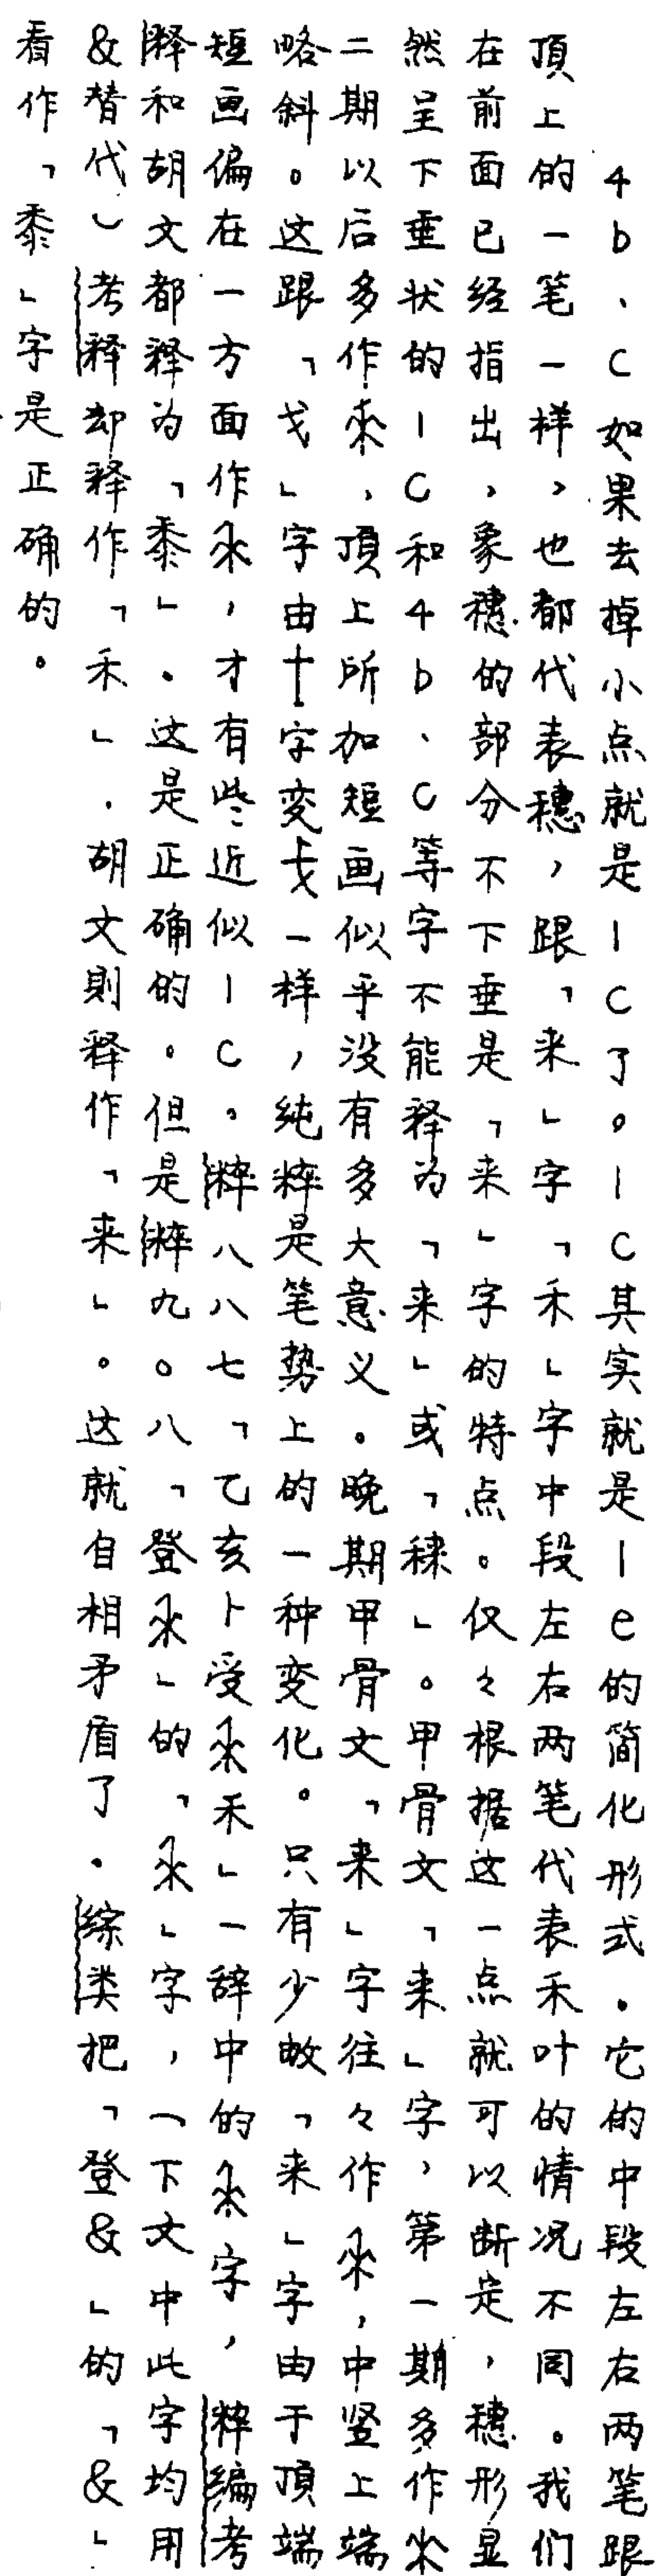 4b、C如果去掉小点就是1C了。1C其实就是1e的简化形式。它的中段左右两笔跟
頂上的一笔一样，也都代表穗，跟「来」字「禾」字中段左右两笔代表禾叶的情况不同。我们
在前面已经指出，象穗的部分不下垂是「来」字的特点。仅々根据这一点就可以断定，穗形显
然呈下垂状的1C和4b、C等字不能释为「来」或「秾」。甲骨文「来」字，第一期多作
二期以后多作，頂上所加短画似乎没有多大意义。晚期甲骨文「来」字往々作，中竖上端
略斜。这跟「戈」字由字变一样，纯粹是笔势上的一种变化。只有少数「来」字由于頂端
短画偏在一方面作，才有些近似1C。粹八八七「乙亥卜受禾」一辞中的字，粹编考
释和胡文都释为「黍」。这是正确的。但是粹九〇八「登」的「」字，（下文中此字均用
&替代）考释却释作「禾」．胡文則释作「来」。这就自相矛盾了．综类把「登&」的「&」
看作「黍」字是正确的。